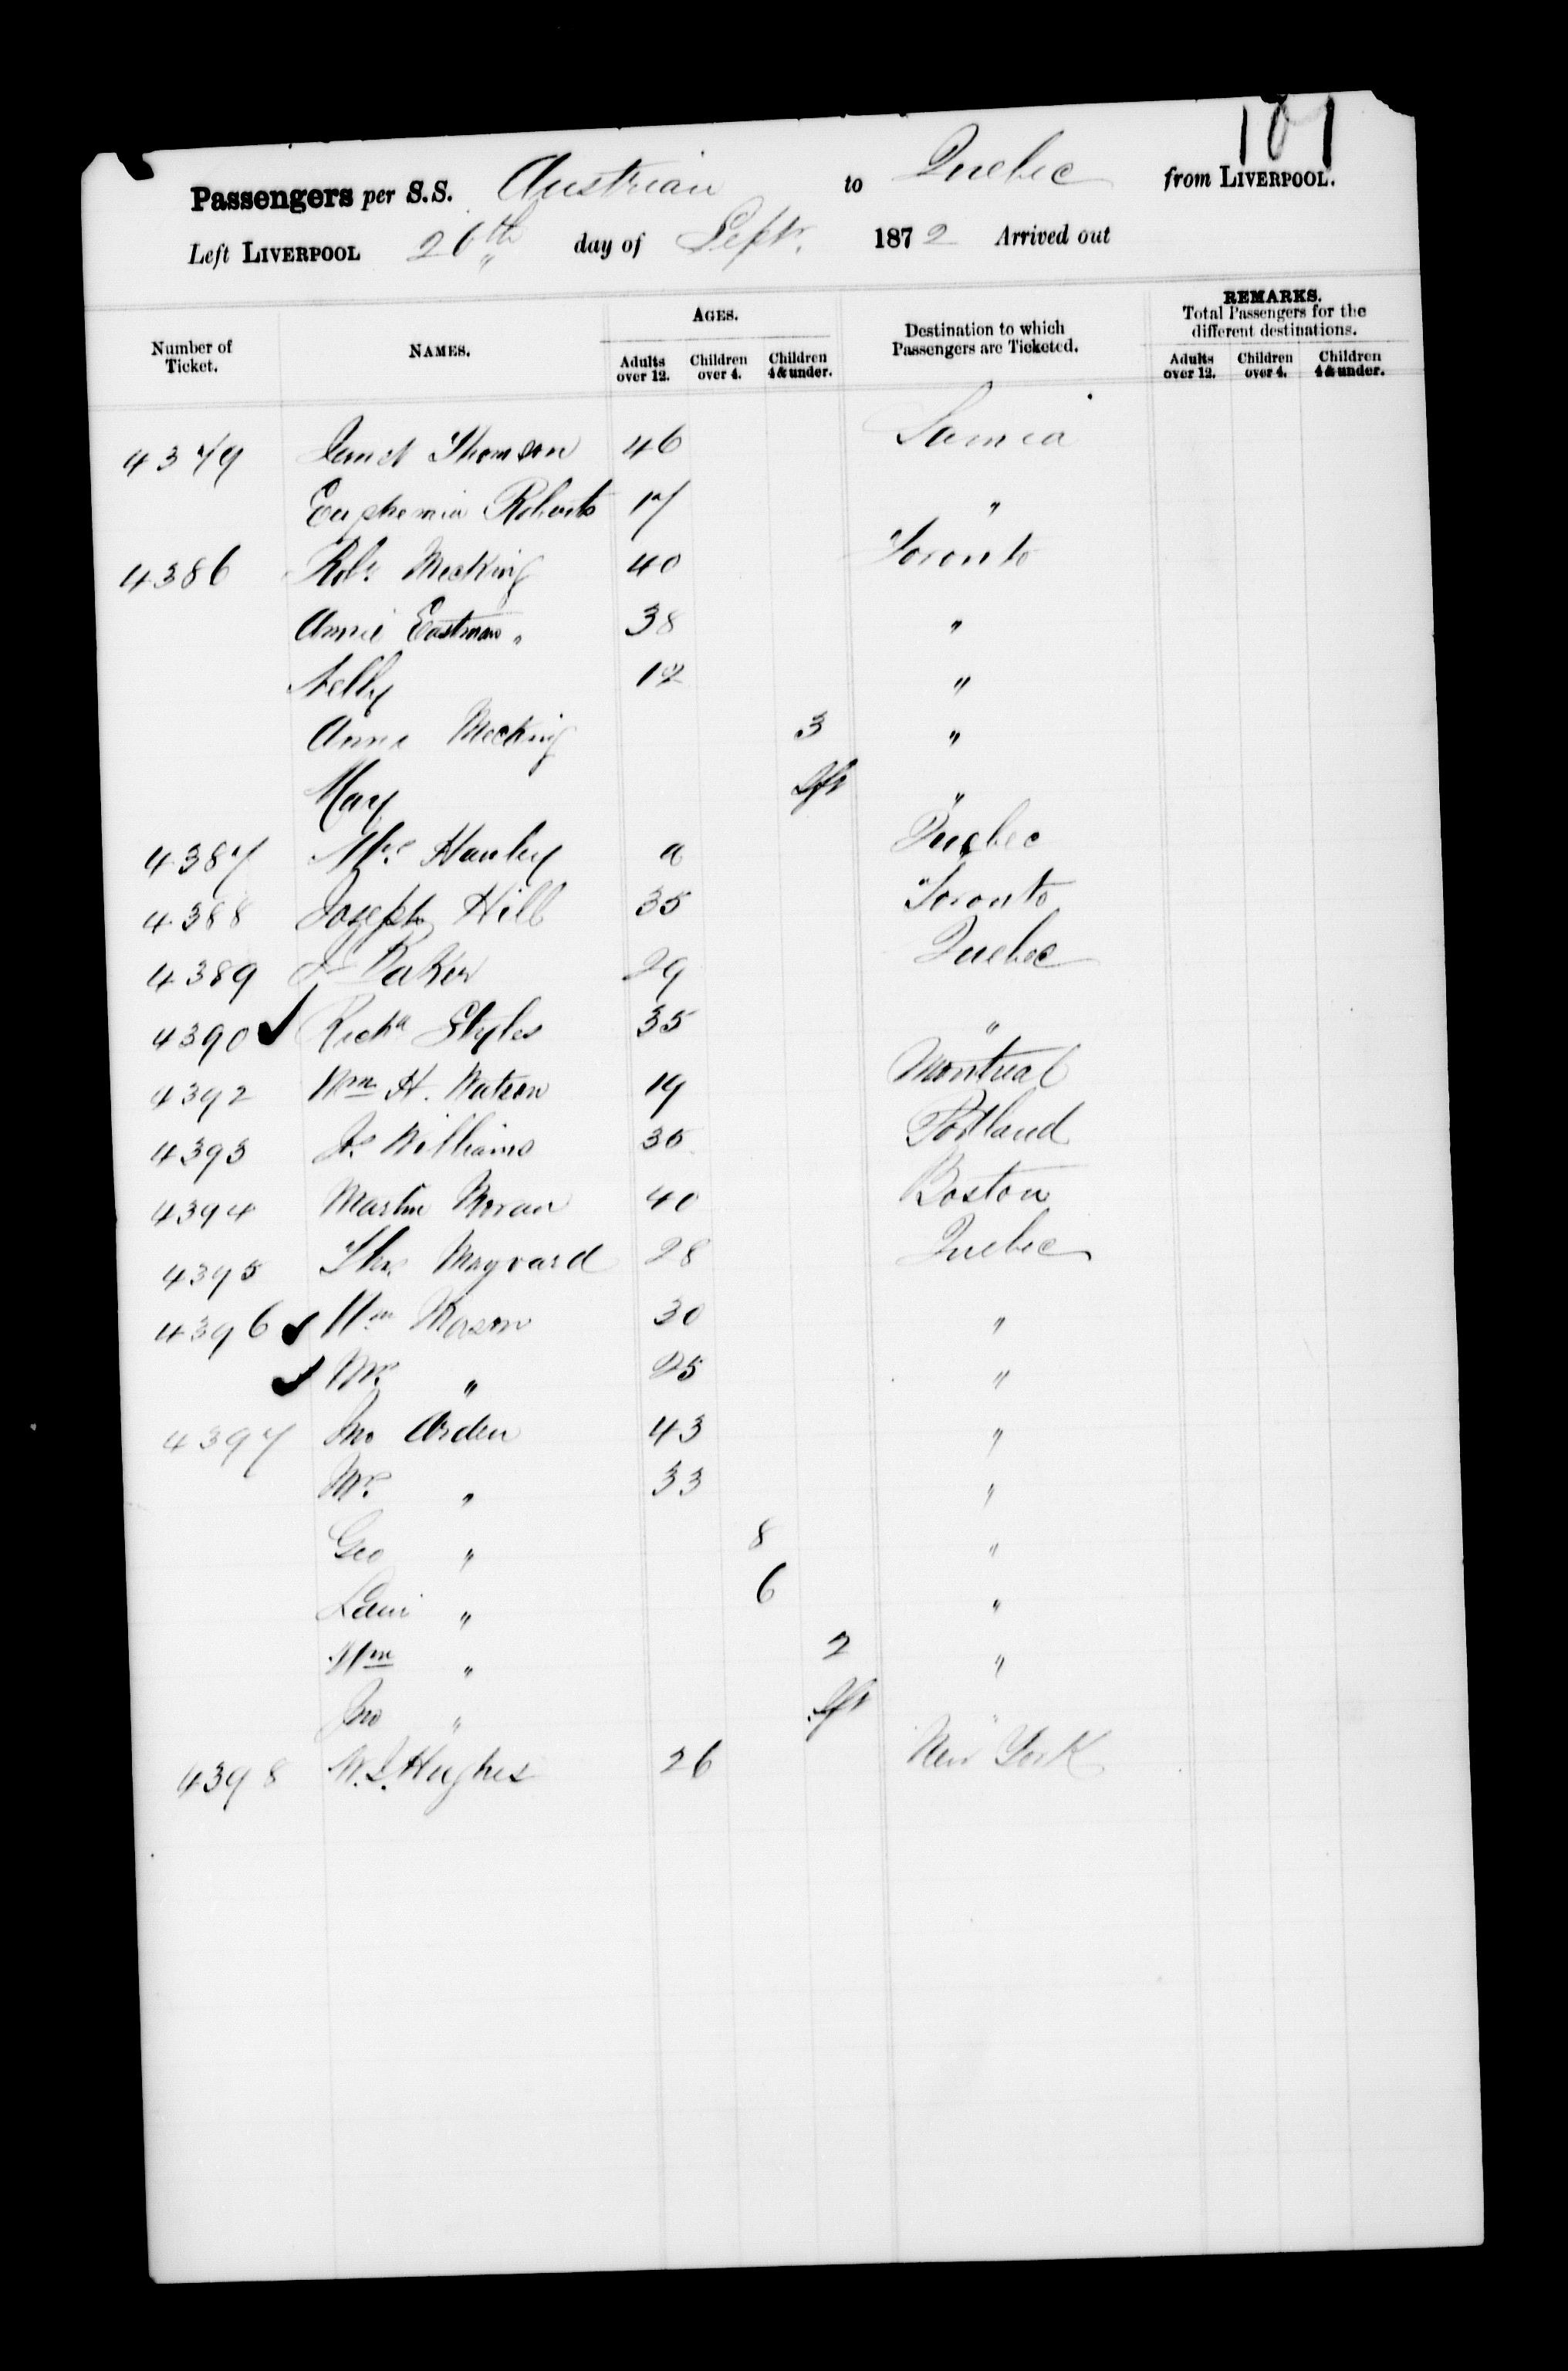 101
Passengers per S.S. Austrian to Quebec from LIVERPOOL.
Left LIVERPOOL 26th day of Sept. 1872 Arrived out
Number of Ticket. NAMES. AGES. Adults over 12. Children over 4. Children 4 & under. Destination to which Passengers are Ticketed. REMARKS. Total Passengers for the different destinations. Adults over 12. Children over 4. Children 4 & under.
4379 Janet Thomson 46 Sarnia
Euphemia Roberts 17 "
4386 Robt Mecking 40 Toronto
Annie Eastman " 38 "
Nelly 12 "
Anna Mecking 3 "
Mary Inft "
4387 Mrs Hanley a Quebec
4388 Joseph Hill 35 Toronto
4389 J Baker 29 Quebec
4390 ✓ Richd Styles 35 "
4392 Wm H. Watson 19 Montreal
4393 Js. Williams 35 Portland
4394 Martin Moran 40 Boston
4395 Thos Maynard 28 Quebec
4396 ✓ Wm Mason 30 "
✓ Mrs " 25 "
4397 Jno Arden 43 "
Mrs " 33 "
Geo " 8 "
" 6 "
Wm " 2 "
Jno " Inft "
4398 W.J. Hughes 26 New York